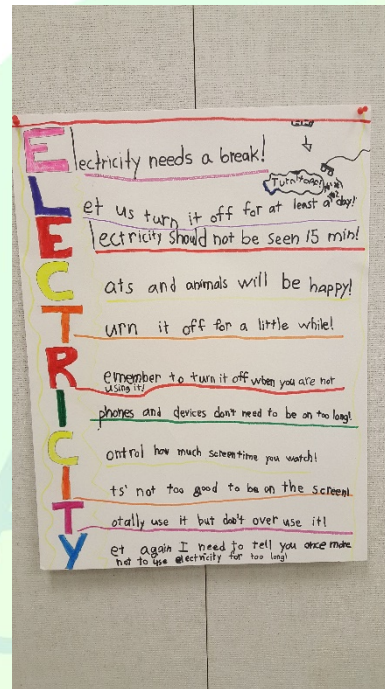 Electricity needs a break!
Turn it off!
Let us turn it off for at least a day!
Electricity should not be seen 15 min!
Cats and animals will be happy!
Turn it off for a little while!
Remember to turn it off when you are not
using it!
Iphones and devices don't need to be on too long!
Control how much screentime you watch!
Its' not too good to be on the screen!
Totally use it but don't over use it!
Yet again I need to tell you once more
not to use electricity for too long!